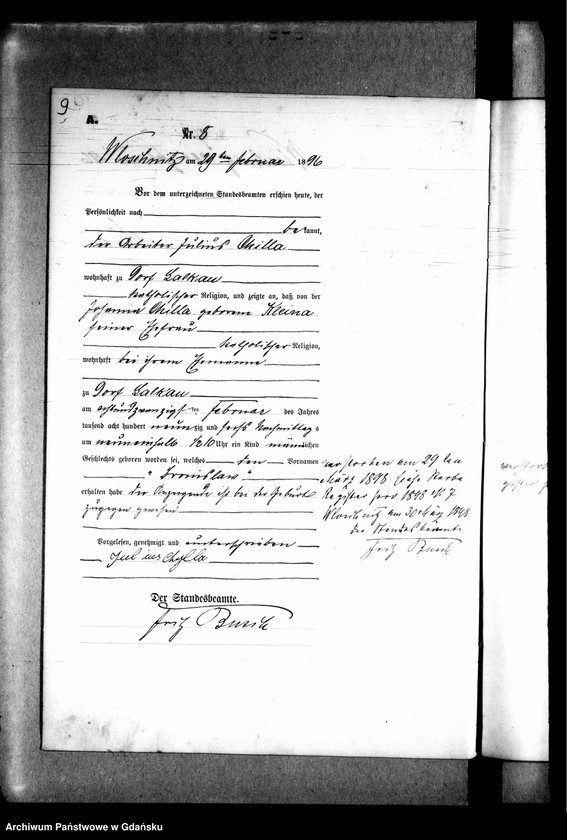 9
A.
Nr. 8
Wloschnitz am 29ten Februar 1896
Vor dem unterzeichneten Standesbeamten erschien heute, der
Persönlichkeit nach
bekannt,
der Arbeiter Julius Chilla
wohnhaft zu Dorf Lalkau
katholischer Religion, und zeigte an, daß von der
Johanna Chilla geborene Kleina
seiner Ehefrau
katholischer Religion,
wohnhaft bei ihrem Ehemanne
zu Dorf Lalkau
am achtundzwanzigsten Februar des Jahres
tausend acht hundert neunzig und sechs Nachmittags
um neuneinhalb Uhr ein Kind männlichen
Geschlechts geboren worden sei, welches den Vornamen
"Bronislaw"
erhalten habe. Der Anzeigende ist bei der Geburt
zugegen gewesen
Vorgelesen, genehmigt und unterschrieben
Julius Chylla
Der Standesbeamte.
Fritz Busch
verstorben am 29ten
März 1898 siehe Sterbe
Register pro 1898 N. 7
Wloschnitz am 30 März 1898
Der Standesbeamte
Fritz Busch
Archiwum Państwowe w Gdańsku